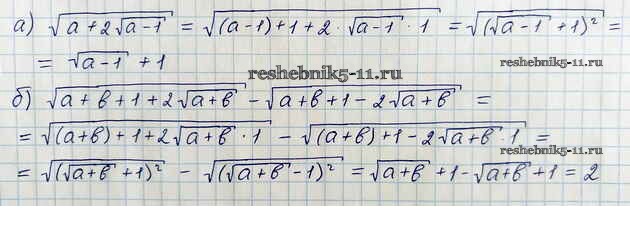 а) √(a + 2√(a-1)) = √((a-1) + 1 + 2 · √(a-1) · 1) = √((√(a-1) + 1)²) =
= √(a-1) + 1
reshebnik5-11.ru
б) √(a + b + 1 + 2√(a+b)) - √(a + b + 1 - 2√(a+b)) =
= √((a+b) + 1 + 2√(a+b) · 1) - √((a+b) + 1 - 2√(a+b) · 1) =
reshebnik5-11.ru
= √((√(a+b) + 1)²) - √((√(a+b) - 1)²) = √(a+b) + 1 - √(a+b) + 1 = 2